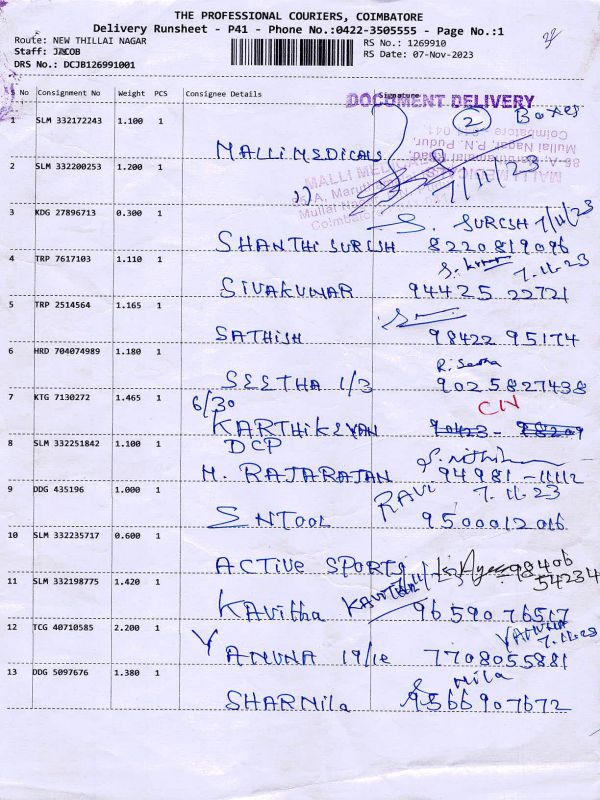 THE PROFESSIONAL COURIERS, COIMBATORE
Delivery Runsheet - P41 - Phone No.:0422-3505555 - Page No.:1
Route: NEW THILLAI NAGAR RS No.: 1269910
Staff: JACOB RS Date: 07-Nov-2023
DRS No.: DCJB126991001
S No Consignment No Weight PCS Consignee Details Signature
DOCUMENT DELIVERY
1 SLM 332172243 1.100 1
2 Boxes
MALLI MEDICALS
2 SLM 332200253 1.200 1
,, 7/11/23
3 KDG 27896713 0.300 1
S. SURESH 7/11/23
SHANTHI SURESH 8220819096
4 TRP 7617103 1.110 1
7.11.23
SIVAKUMAR 94425 22721
5 TRP 2514564 1.165 1
SATHISH 98422 95174
6 HRD 704074989 1.180 1
SEETHA 1/3 9025827438
7 KTG 7130272 1.465 1
6/30
KARTHIKEYAN
8 SLM 332251842 1.100 1
DCP
M. RAJARAJAN 94981-11112
9 DDG 435196 1.000 1
RAVI 7.11.23
SNTOOL 9500012016
10 SLM 332235717 0.600 1
ACTIVE SPORTS 98406
54234
11 SLM 332198775 1.420 1
Kavitha 9659076517
12 TCG 40710585 2.200 1
YAMUNA
7.11.23
YAMUNA 19/1E 7708055881
13 DDG 5097676 1.380 1
Nila
SHARNila 9566907672